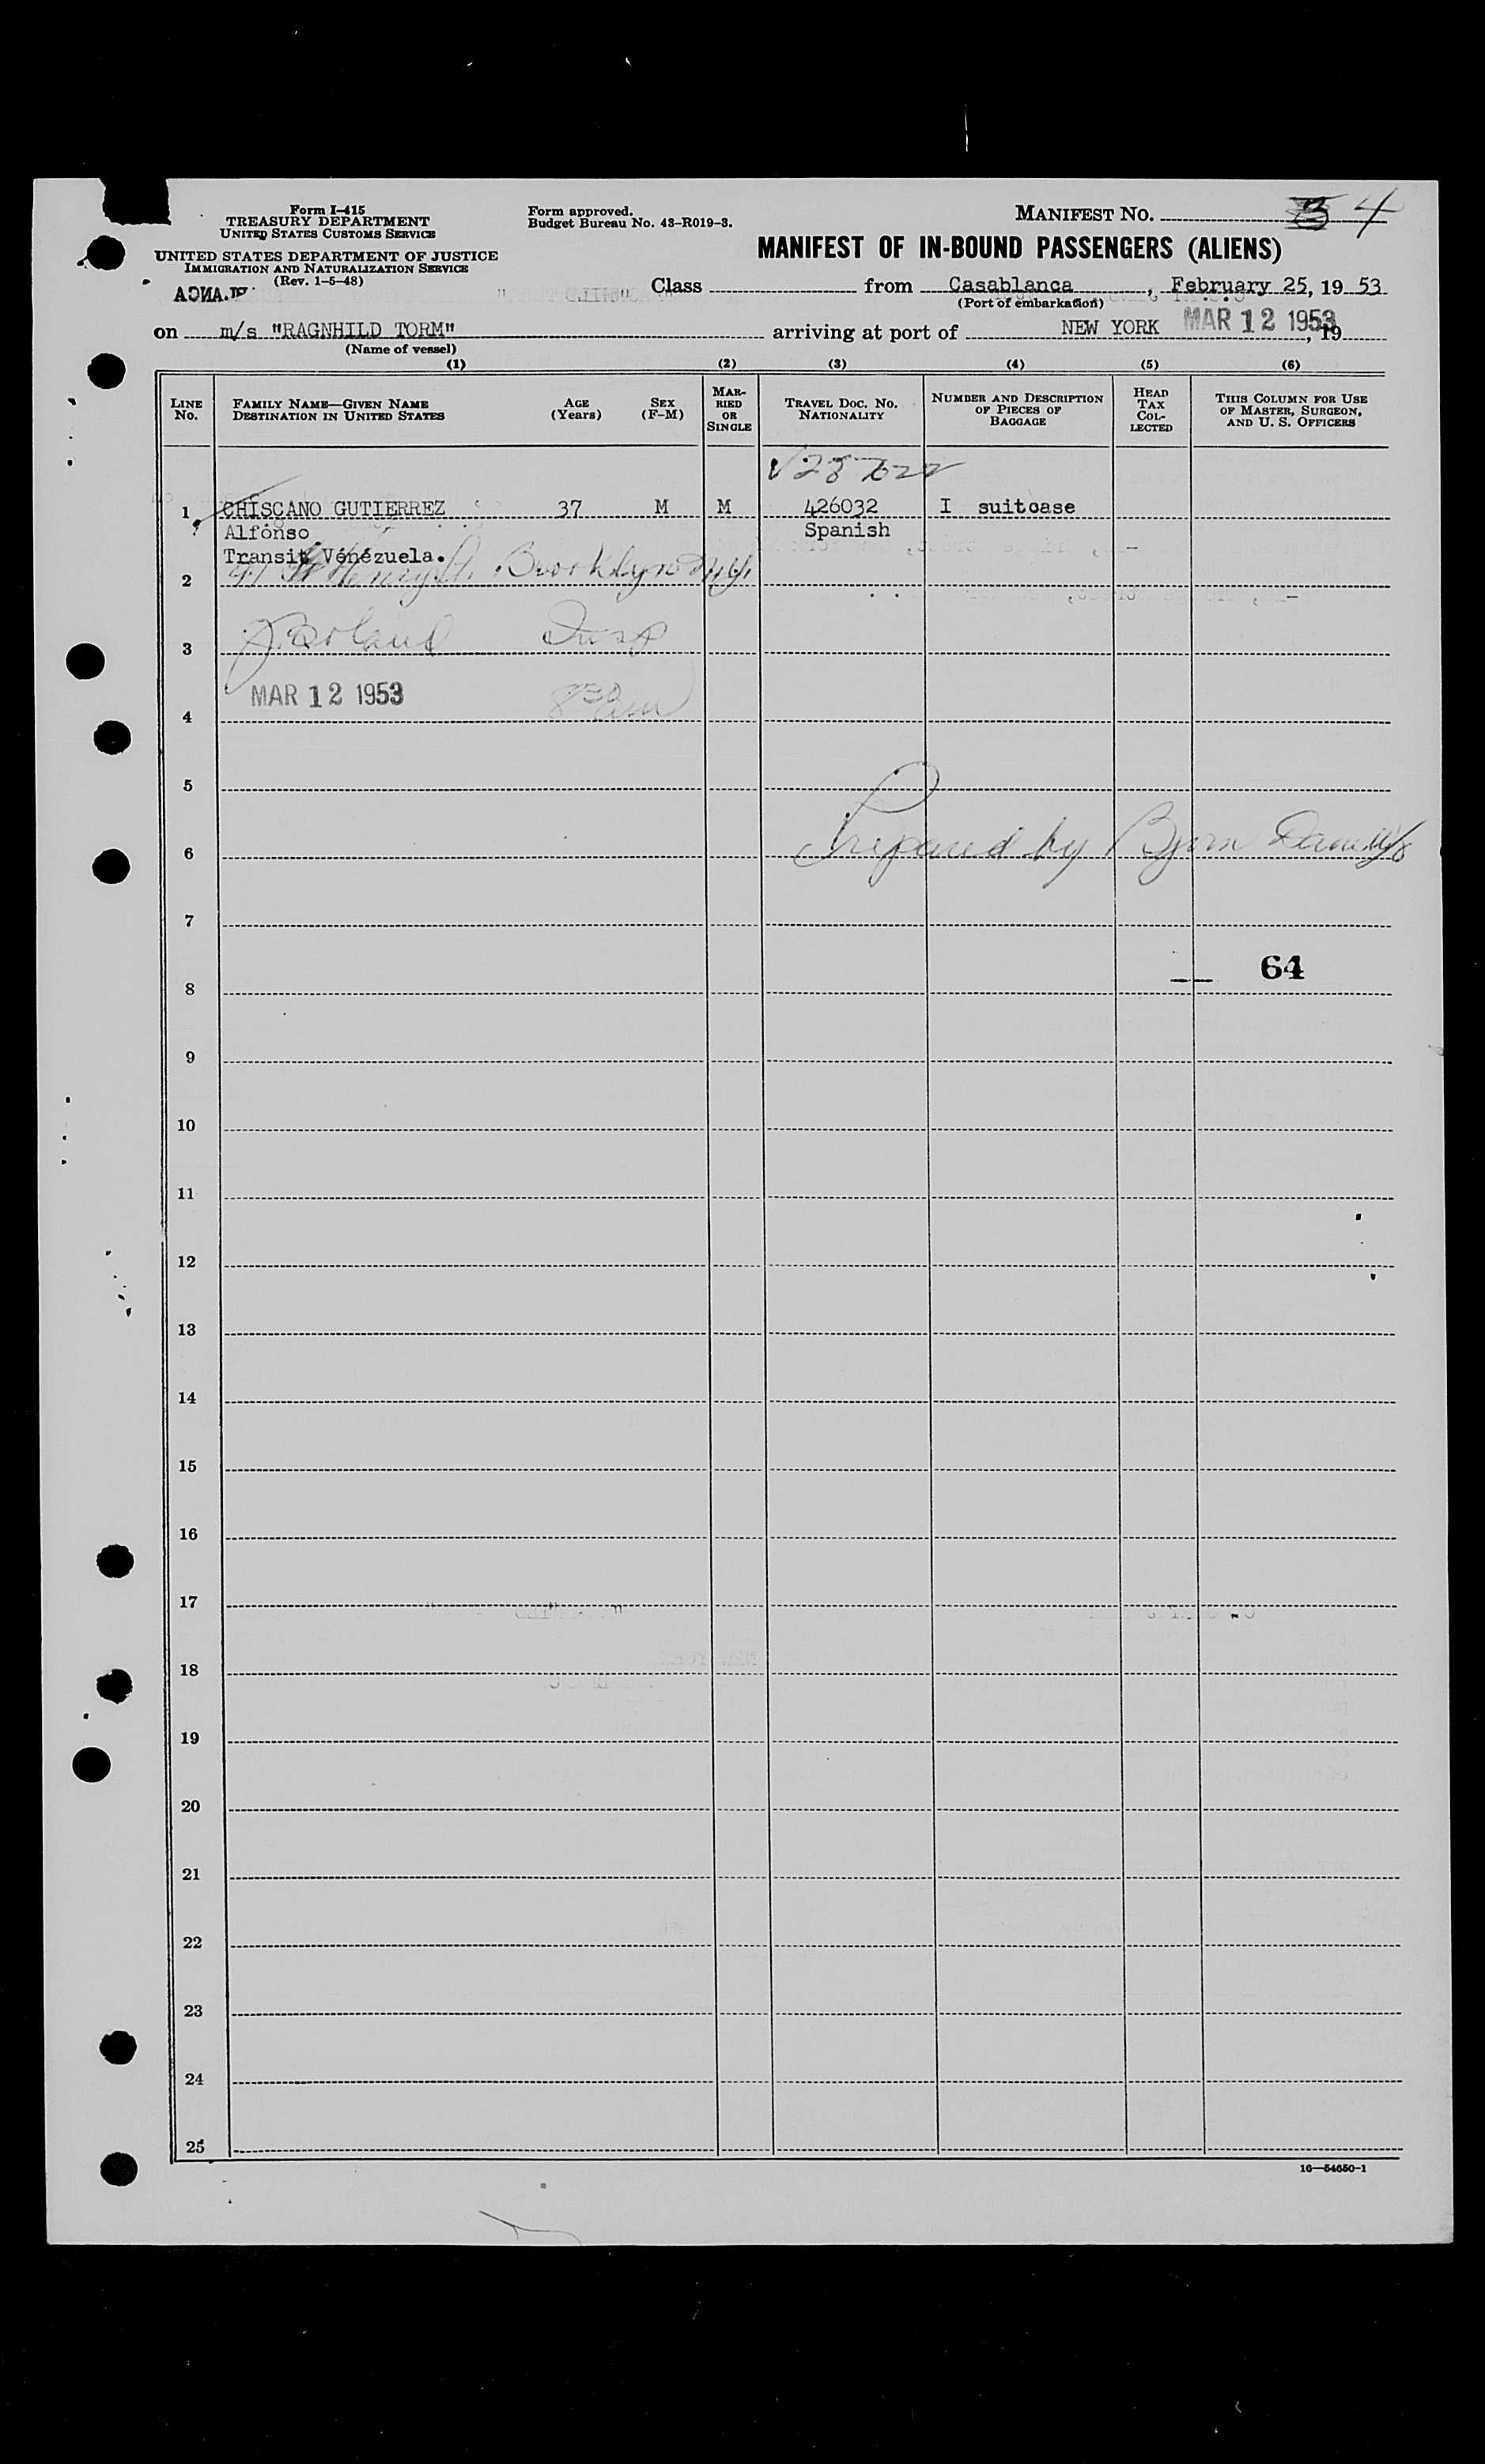 Form I-415
TREASURY DEPARTMENT
UNITED STATES CUSTOMS SERVICE
UNITED STATES DEPARTMENT OF JUSTICE
IMMIGRATION AND NATURALIZATION SERVICE
(Rev. 1-5-48)
Form approved.
Budget Bureau No. 43-R019-3.
MANIFEST NO. 3 4
MANIFEST OF IN-BOUND PASSENGERS (ALIENS)
Class from Casablanca, February 25, 19 53
(Port of embarkation)
on m/s "RAGNHILD TORM" arriving at port of NEW YORK MAR 12 1953, 19
(Name of vessel)
(1) (2) (3) (4) (5) (6)
LINE No. FAMILY NAME—GIVEN NAME DESTINATION IN UNITED STATES AGE (Years) SEX (F-M) MARRIED OR SINGLE TRAVEL DOC. NO. NATIONALITY NUMBER AND DESCRIPTION OF PIECES OF BAGGAGE HEAD TAX COLLECTED THIS COLUMN FOR USE OF MASTER, SURGEON, AND U. S. OFFICERS
1 CHISCANO GUTIERREZ 37 M M 426032 I suitcase
Alfonso Spanish
Transit Vénézuela.
2 Henry St. Brooklyn N.Y.
3 Insp
MAR 12 1953
4
5
6 Prepared by Bjorn
7
64
8
9
10
11
12
13
14
15
16
17
18
19
20
21
22
23
24
25
16—54650-1